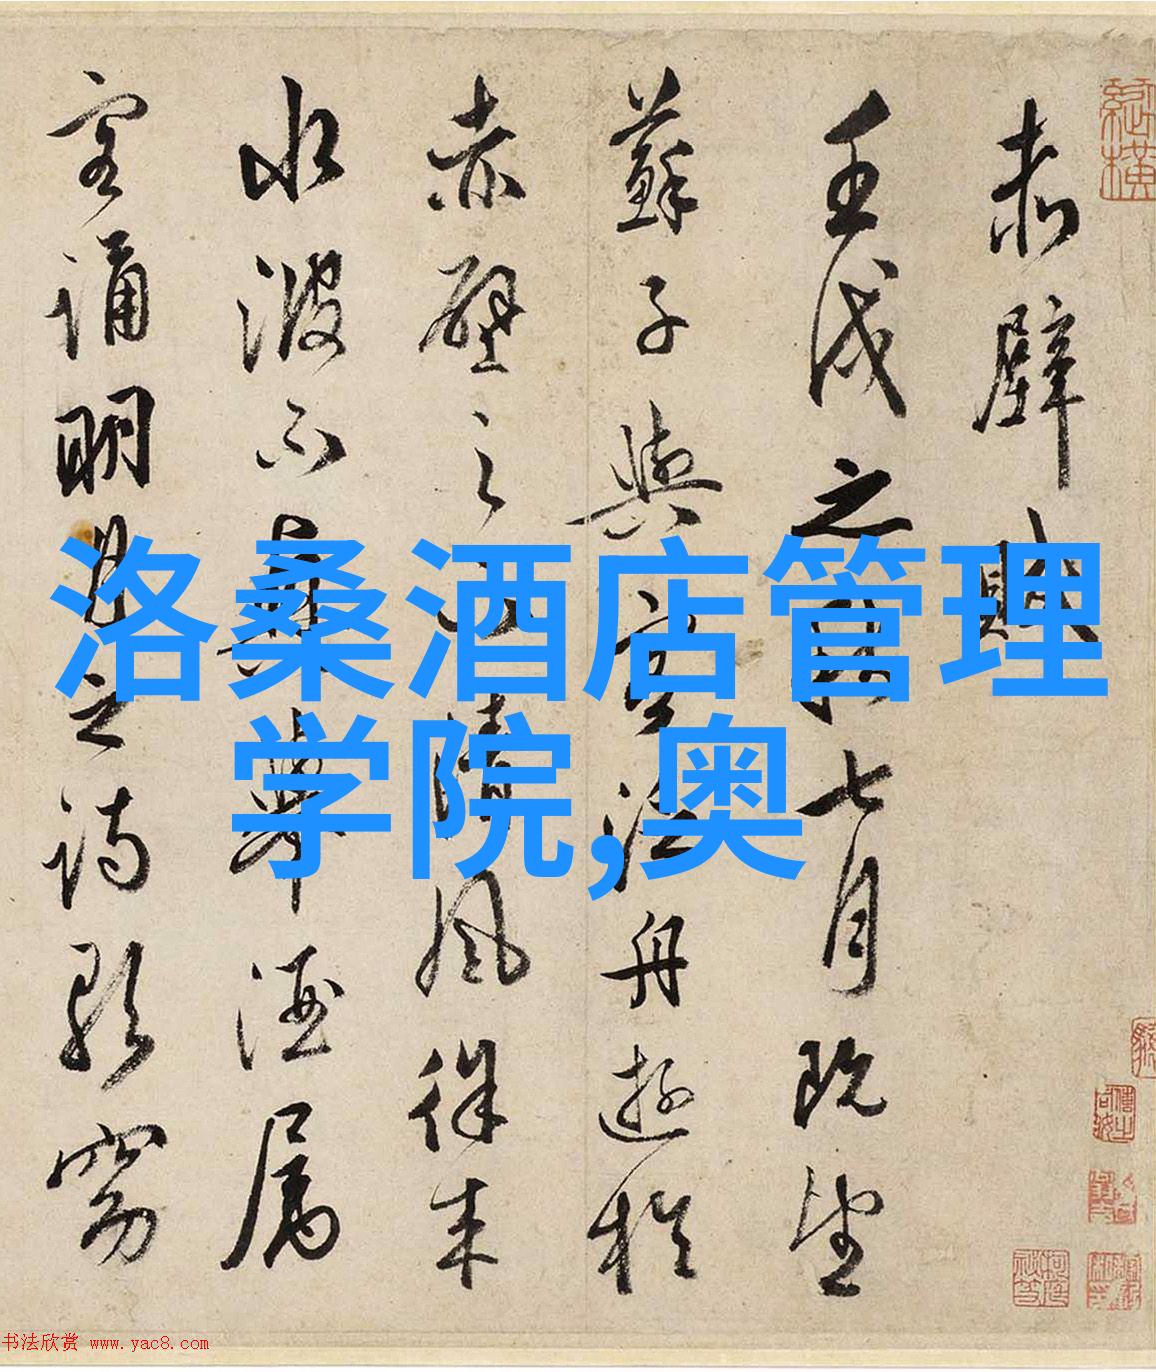 赤壁賦
壬戌之秋七月既望
蘇子與客泛舟遊於
赤壁之下清風徐来
水波不興舉酒属
客誦明月之詩歌窈
洛桑酒店管理
学院,奥
书法欣赏 www.yac8.com